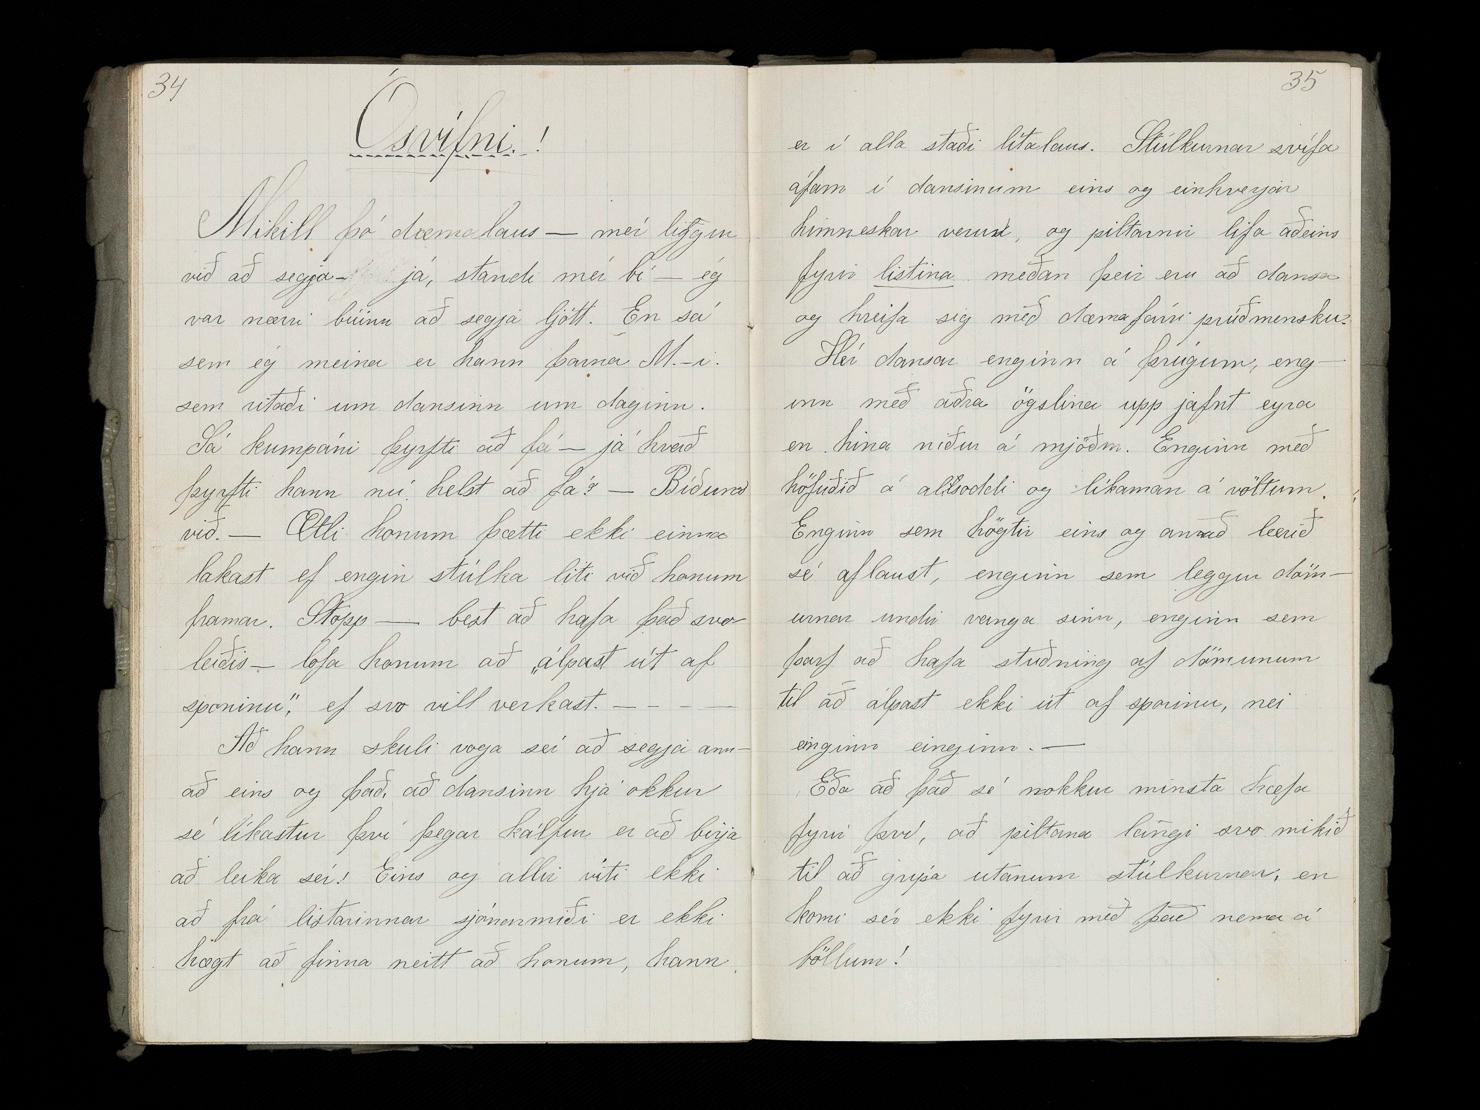 34
Ósvífni!
Mikill þó dæmalaus — mér liggur
við að segja — já, standi mér bí — ég
var nærri búinn að segja ljótt. En sá
sem ég meina er hann þarna M.-i.
sem ritaði um dansinn um daginn.
Sá kumpáni þyrfti að fá — já hvað
þyrfti hann nú helst að fá? — Bíðum
við. — Ætli honum þætti ekki einna
lakast ef engin stúlka liti við honum
framar. Stopp — best að hafa það svo
leiðis — lofa honum að „álpast út af
sporinu", ef svo vill verkast. — — — —
Að hann skuli voga sér að segja ann-
að eins og það, að dansinn hjá okkur
sé líkastur því þegar kálfur er að birja
að leika sér! Eins og allir viti ekki
að frá listarinnar sjónarmiði er ekki
hægt að finna neitt að honum, hann
35
er í alla staði lítalaus. Stúlkurnar svífa
áfam í dansinum eins og einhverjar
himneskar verur, og piltarnir lifa aðeins
fyrir listina meðan þeir eru að dansa
og hreifa sig með dæmafárri prúðmensku.
Hér dansar enginn á þrúgum, eng-
inn með aðra ögslina upp jafnt eyra
en hina niður á mjöðm. Enginn með
höfuðið á alsoddi og líkaman á völtum.
Enginn sem högtir eins og annað lærið
sé aflaust, enginn sem leggur döm-
urnar undir vanga sinn, enginn sem
þarf að hafa stuðning af dömunum
til að álpast ekki út af sporinu, nei
einginn einginn. —
Eða að það sé nokkur minsta hæfa
fyrir því, að piltana lángi svo mikið
til að grípa utanum stúlkurnar, en
komi sér ekki fyrir með það nema á
böllum!